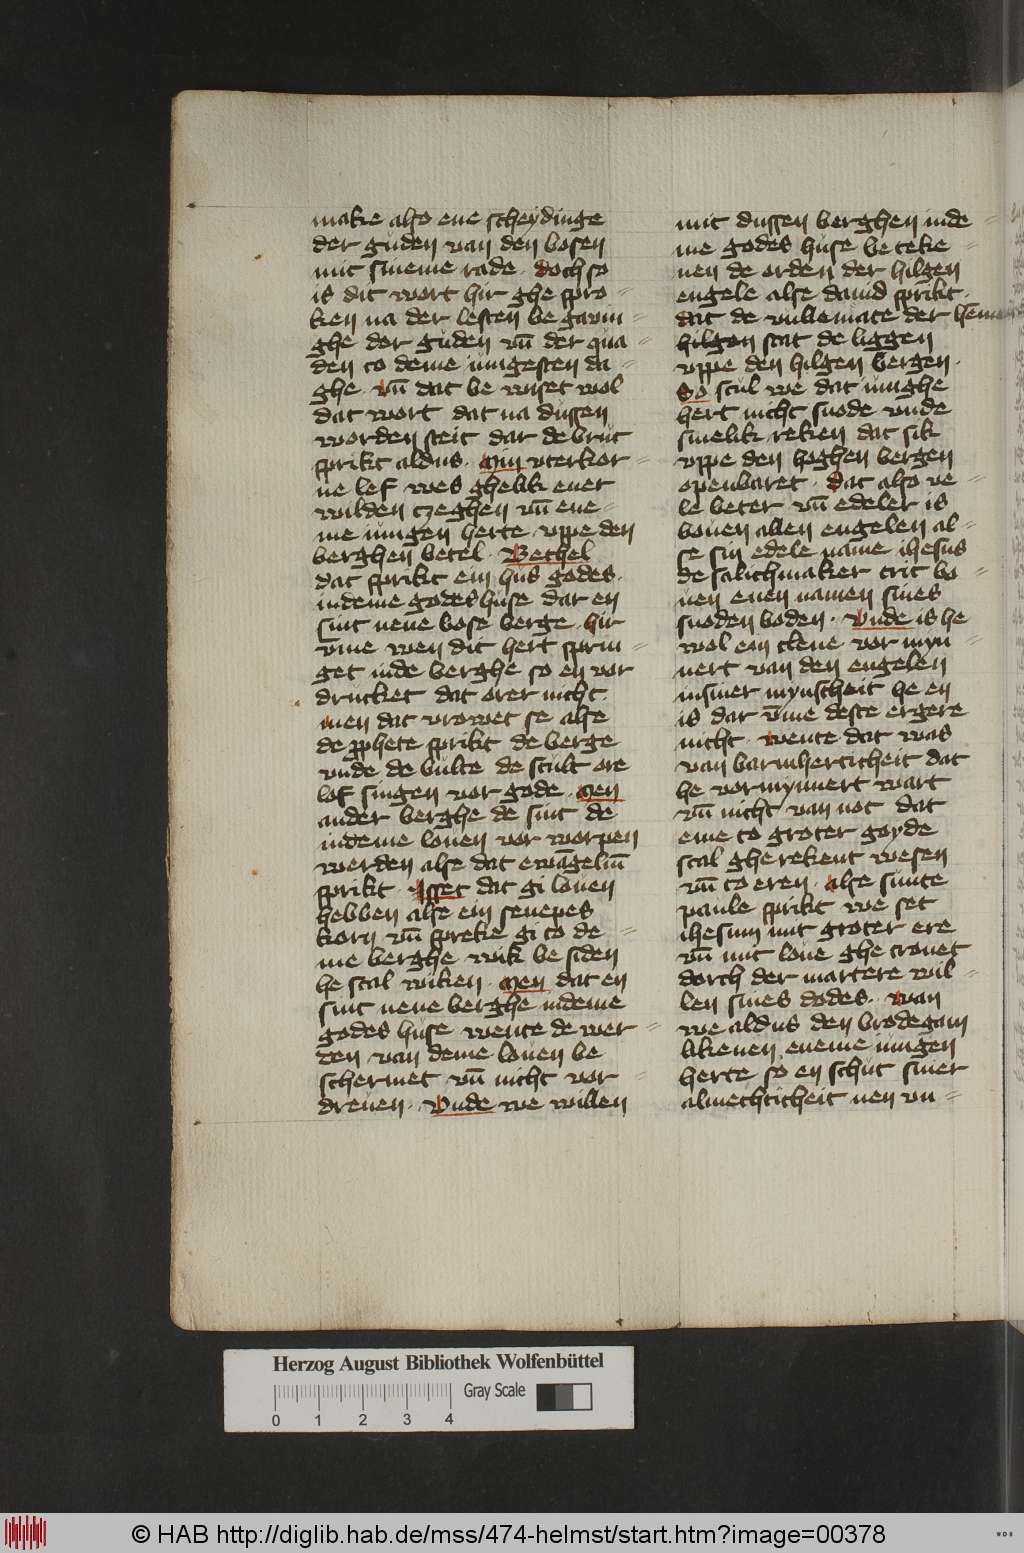 make also ene scheydinge
der guden van den bosen
mit sineme rade · doch so
is dit wort hir ghe spro-
ken na der lesten be gauin-
ghe der guden vn̄ der qua-
den to deme iungesten da-
ghe · vn̄ dat be wiset wol
dat wort dat na dussen
worden steit dar de brut
sprikt aldus · Min vterkor-
ne lef wes ghelik ener
wilden czeghen vn̄ ene-
me iungen herte vppe den
berghen betel · Bethel
dat sprikt ein hus godes ·
indeme godes huse dar en
sint nene bose berge hir
vm̄e wen dit hert sprin-
get inde berghe so en vor
drucket dat orer nicht
men dat vrowet se alse
de pphete sprikt de berge
vnde de bulte de scult ore
lof singen vor gode · Men
ander berghe de sint de
indeme louen vor worpen
werden alse dat ewāgeliū
sprikt · Isset dat gi louen
hebben alse ein senepes
korn vn̄ spreke gi to de-
me berghe wik be siden
he scal wiken · Men dat en
sint nene berghe indeme
godes huse wente de wer-
den van deme louen be
schermet vn̄ nicht vor-
dreuen · Vnde we willen
mit dussen berghen inde-
me godes huse beteke-
nen de orden der hilgen
engele alse dauid sprikt ·
dat de vullemate der
hilgen scat de liggen
vppe den hilgen bergen ·
So scul we dat iunghe
hert nicht snode vnde
sinelik reken dat sik
vppe den hoghen bergen
openbaret · dat also ve-
le beter vn̄ edeler is
bouen allen engelen al-
se sin edele name ihesus
de salichmaker trit bo-
uen enen namen sines
snoden boden · Vnde is he
wol ein clene vor myn-
nert van den engelen
insiner mynscheit he en
is dar vm̄e deste ergere
nicht · wente dat was
van barmherticheit dat
he vormynnert wart
vn̄ nicht van not dat
eme to groter goyde
scal gherekent wesen
vn̄ to eren · alse sunte
paule sprikt we set
ihesum mit groter ere
vn̄ mit loue ghe cronet
dorch der martere wil-
len sines dodes · wan
we aldus den brodegam
likenen eneme iungen
herte so en schut siner
almechticheit nen vn-
Herzog August Bibliothek Wolfenbüttel
Gray Scale
0 1 2 3 4
© HAB http://diglib.hab.de/mss/474-helmst/start.htm?image=00378